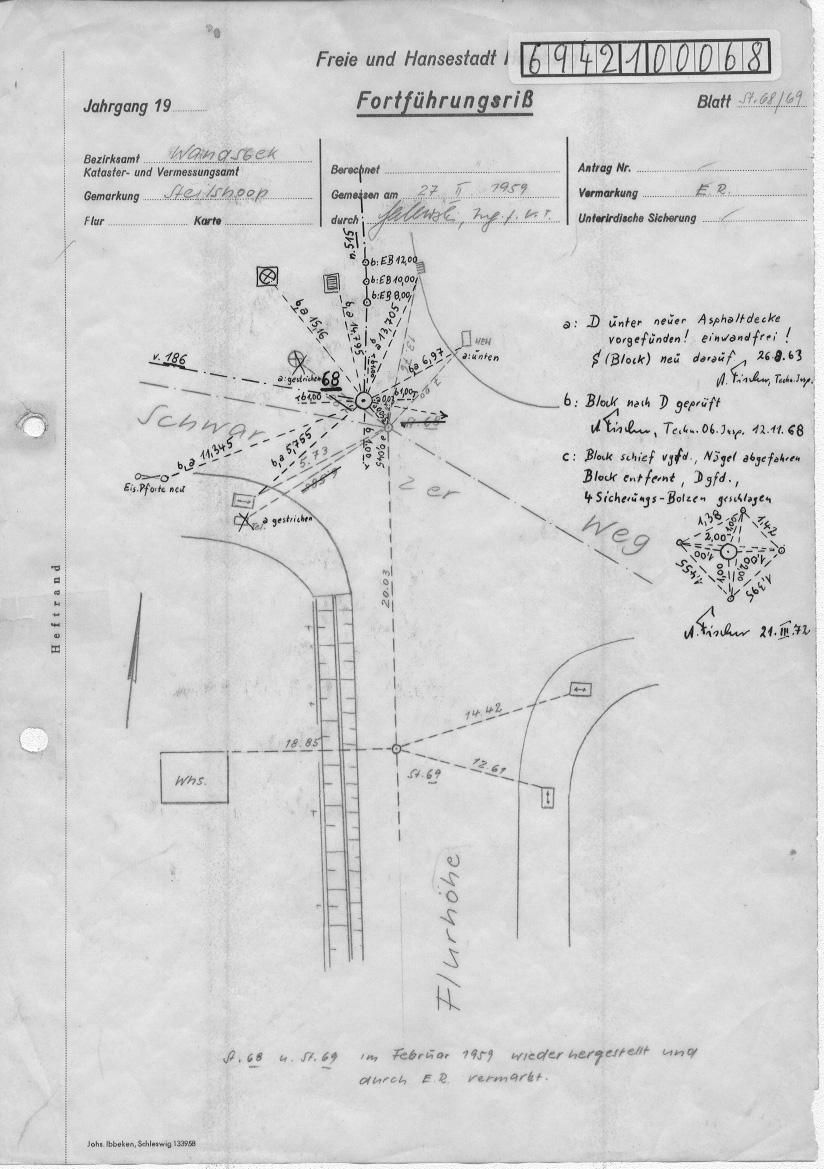 Freie und Hansestadt
6942100068
Jahrgang 19
Fortführungsriß
Blatt St.68/69
Bezirksamt Wandsbek
Kataster- und Vermessungsamt
Gemarkung Steilshoop
Flur Karte
Berechnet
Gemessen am 27 II 1959
durch
Antrag Nr.
Vermarkung E.R.
Unterirdische Sicherung
n. 515
b: EB 12,00
b: EB 10,00
b: EB 8,00
b,a 15,16
b,a 14,795
13,705
b,a 6,97
a: unten
v. 186
a: gestrichen
68
1,00
b 1,00
St. 68
9,045
b,a 11,345
b,a 5,755
5.73
Eis. Pforte neu
a gestrichen
Schwar
zer
Weg
a: D unter neuer Asphaltdecke
vorgefunden! einwandfrei!
(Block) neu darauf 26.8.63
A. Fischer, Techn. Insp.
b: Block nach D geprüft
A. Fischer, Techn. Ob. Insp. 12.11.68
c: Block schief vgfd., Nägel abgefahren
Block entfernt, D gfd.,
4 Sicherungs-Bolzen geschlagen
1,38
1,42
2,00
1,00
1,00
1,00
1,455
1,395
A. Fischer 21.III.72
Heftrand
20.03
14.42
18.85
12.61
Whs.
St. 69
Flurhöhe
St. 68 u. St. 69 im Februar 1959 wiederhergestellt und
durch E.R. vermarkt.
Johs. Ibbeken, Schleswig 133958